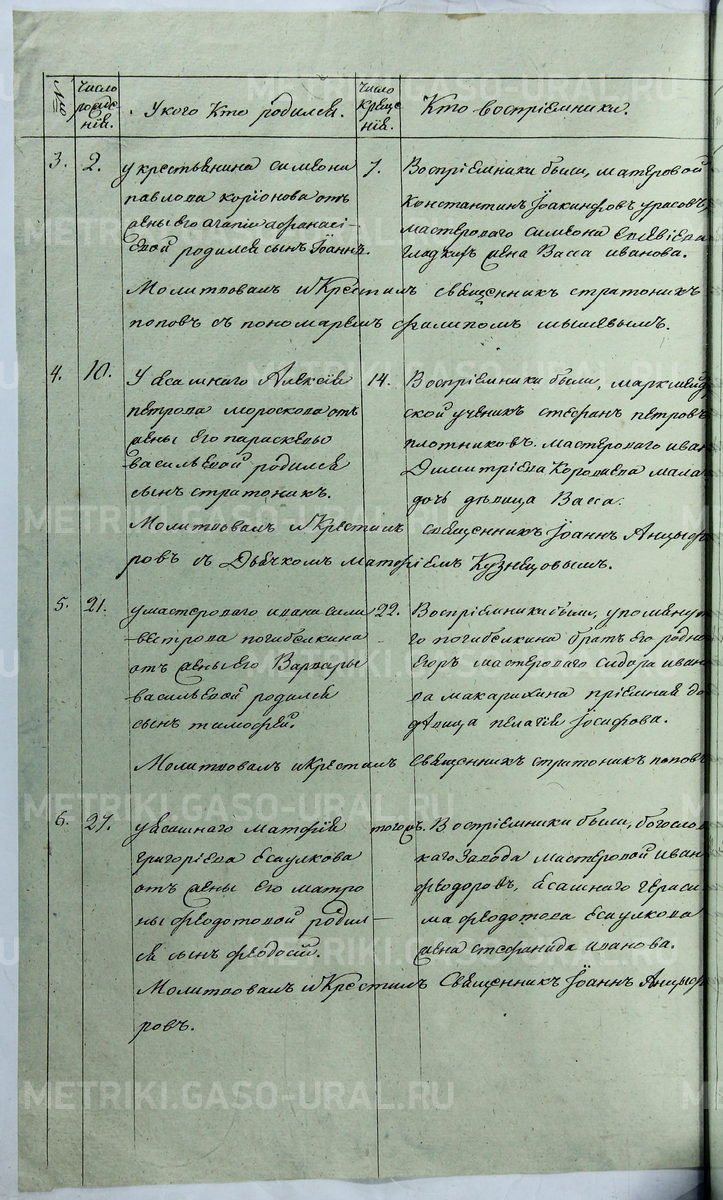 №
Число рожденія.
У кого Кто родился.
Число Крещенія.
Кто воспріемники.
3. 2. у крестьянина симеона
павлова корiонова отъ
жены его агапiи афанасi-
евой родился сынъ Iоаннъ.
7. Воспріемники были, матеровой
Константинъ Iоакинфовъ
мастероваго симеона
гладкихъ жена Васса иванова.
Молитвовалъ и Крестилъ священникъ стратоникъ
поповъ съ пономаремъ филипомъ мышевымъ.
4. 10. У ясашнаго Алексѣя
петрова морoскова отъ
жены его параскевы
васильевой родился
сынъ стратоникъ.
14. Воспріемники были, маркшейд
ской ученикъ стефанъ петровъ
плотниковъ. мастероваго иван
Димитрiева Королева мала
дочь дѣвица Васса.
Молитвовалъ и Крестилъ священникъ Iоаннъ Анцыфе
ровъ съ Дьячкомъ матфiемъ Кузнецовымъ.
5. 21. у мастероваго ивана сили
вестрова погибелкина
отъ жены его Варвары
васильевой родился
сынъ тимофей.
22. Воспріемники были, упомянут
го погибелкина братъ его родно
Егоръ мастероваго сидора иван
ва макарихина прiемная до
дѣвица пелагiя iосифова.
Молитвовалъ и Крестилъ Священникъ стратоникъ поповъ
6. 27. у ясашнаго матфiя
григорiева Есаулкова
отъ жены его матро
ны федотовой родил-
ся сынъ феодосiй.
тогожъ. Воспріемники были, богослов
каго Завода мастеровой иван
феодоровъ, ясашнаго гераси
ма федотова есаулкова
жена стефанида иванова.
Молитвовалъ и Крестилъ Священникъ Iоаннъ Анцыфе
ровъ.
METRIKI.GASO-URAL.RU
METRIKI.GASO-URAL.RU
METRIKI.GASO-URAL.RU
METRIKI.GASO-URAL.RU
METRIKI.GASO-URAL.RU
METRIKI.GASO-URAL.RU
METRIKI.GASO-URAL.RU
METRIKI.GASO-URAL.RU